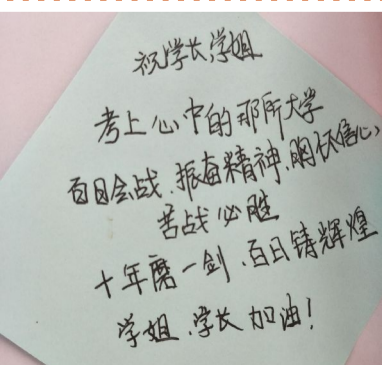 祝学长学姐
考上心中的那所大学
百日会战、振奋精神、胸怀信心、
苦战必胜
十年磨一剑、百日铸辉煌
学姐、学长加油！